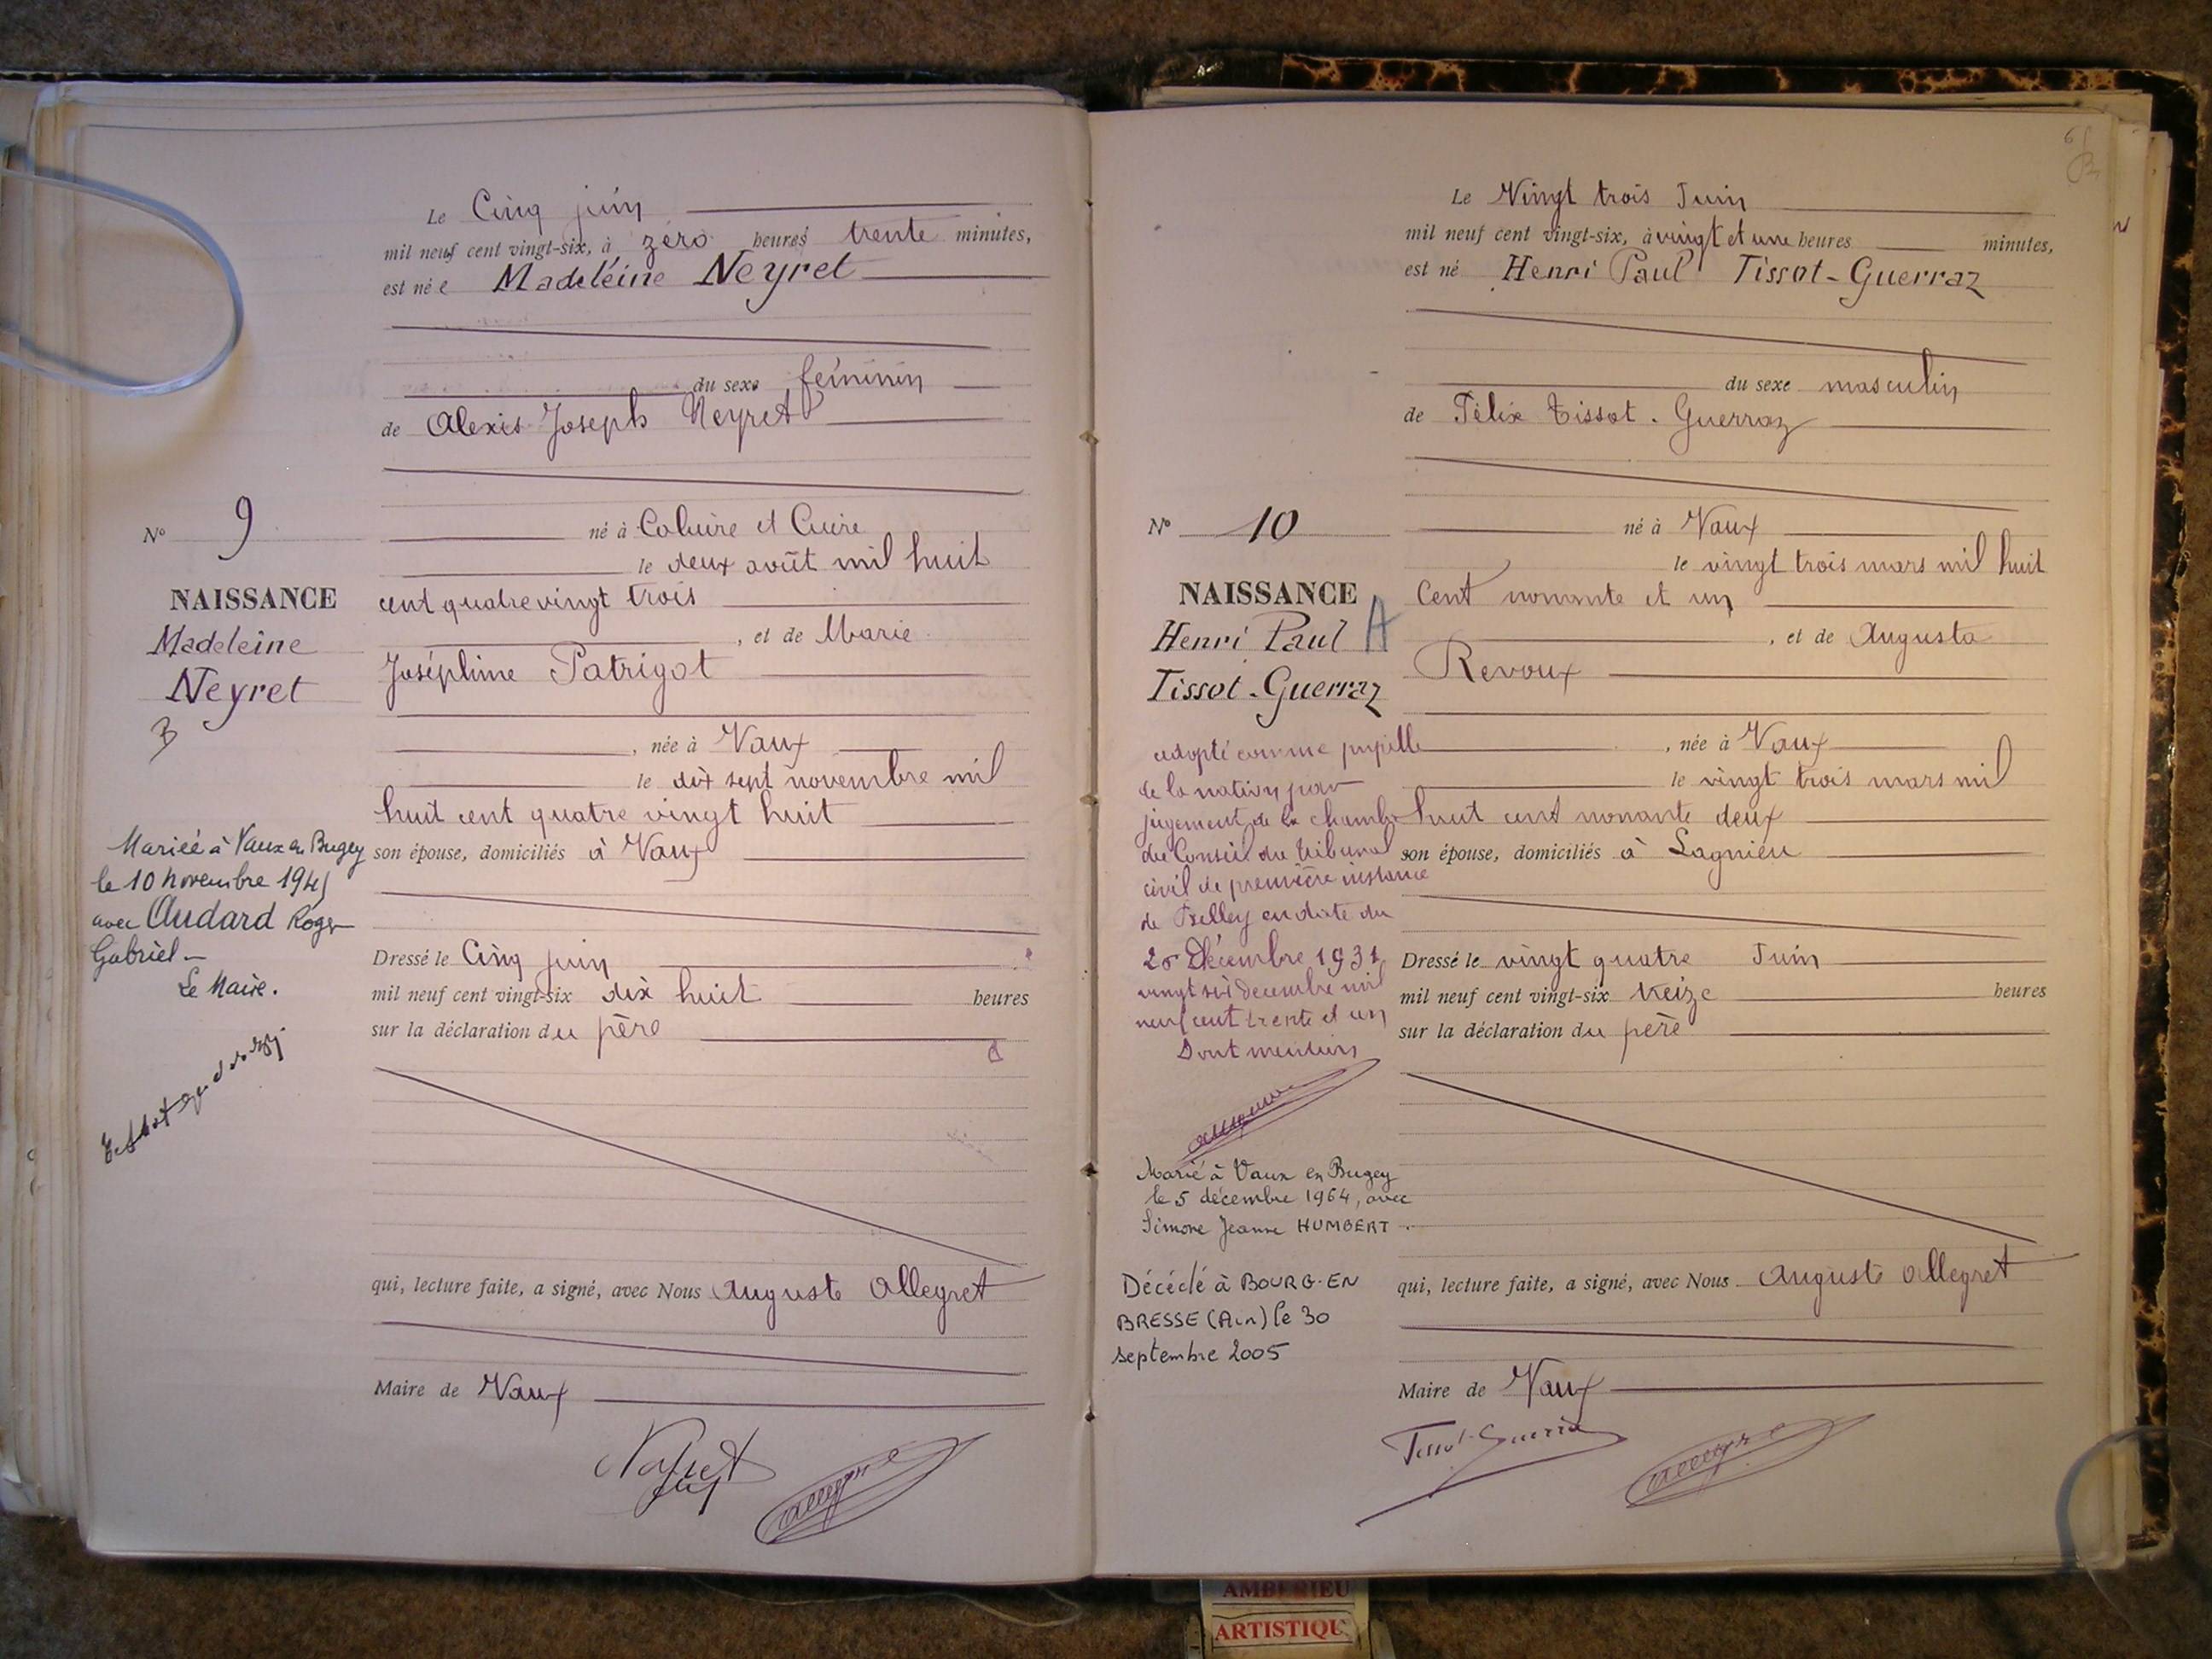 Le Cinq juin
mil neuf cent vingt-six, à zéro heures trente minutes,
est né e Madeleine Neyret
du sexe féminin
de Alexis Joseph Neyret
né à Caluire et Cuire
le deux août mil huit
cent quatre vingt trois
, et de Marie
Joséphine Patrigot
, née à Vaux
le dix sept novembre mil
huit cent quatre vingt huit
son épouse, domiciliés à Vaux
Dressé le Cinq juin
mil neuf cent vingt-six dix huit heures
sur la déclaration du père
qui, lecture faite, a signé, avec Nous Auguste Allegret
Maire de Vaux
Neyret
Allegret
N° 9
NAISSANCE
Madeleine
Neyret
B
Mariée à Vaux en Bugey
le 10 novembre
avec Audard Roger
Gabriel -
Le Maire.
Le Vingt trois Juin
mil neuf cent vingt-six, à vingt et une heures minutes,
est né Henri Paul Tissot-Guerraz
du sexe masculin
de Félix Tissot-Guerraz
né à Vaux
le vingt trois mars mil huit
cent nonante et un
, et de Augusta
Revoux
, née à Vaux
le vingt trois mars mil
huit cent nonante deux
son épouse, domiciliés à Lagnieu
Dressé le vingt quatre Juin
mil neuf cent vingt-six treize heures
sur la déclaration du père
qui, lecture faite, a signé, avec Nous Auguste Allegret
Maire de Vaux
Tissot-Guerraz
Allegret
N° 10
NAISSANCE
Henri Paul A
Tissot-Guerraz
adopté comme pupille
de la nation par
jugement de la chambre
du Conseil du tribunal
civil de première instance
de Belley en date du
26 Décembre 1931
vingt six decembre mil
neuf cent trente et un
Dont mention
Marié à Vaux en Bugey
le 5 décembre 1964, avec
Simone Jeanne HUMBERT.
Décédé à BOURG-EN
BRESSE (Ain) le 30
septembre 2005
AMBERIEU
ARTISTIQU